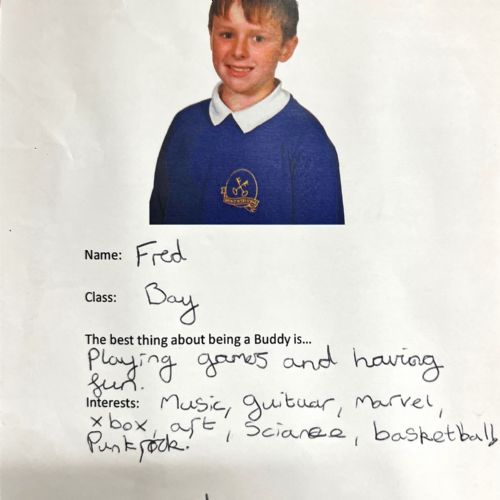 Name: Fred
Class: Bay
The best thing about being a Buddy is...
Playing games and having
fun.
Interests: Music, guituar, Marvel,
xbox, art, Scianee, basketball,
Punk rock.